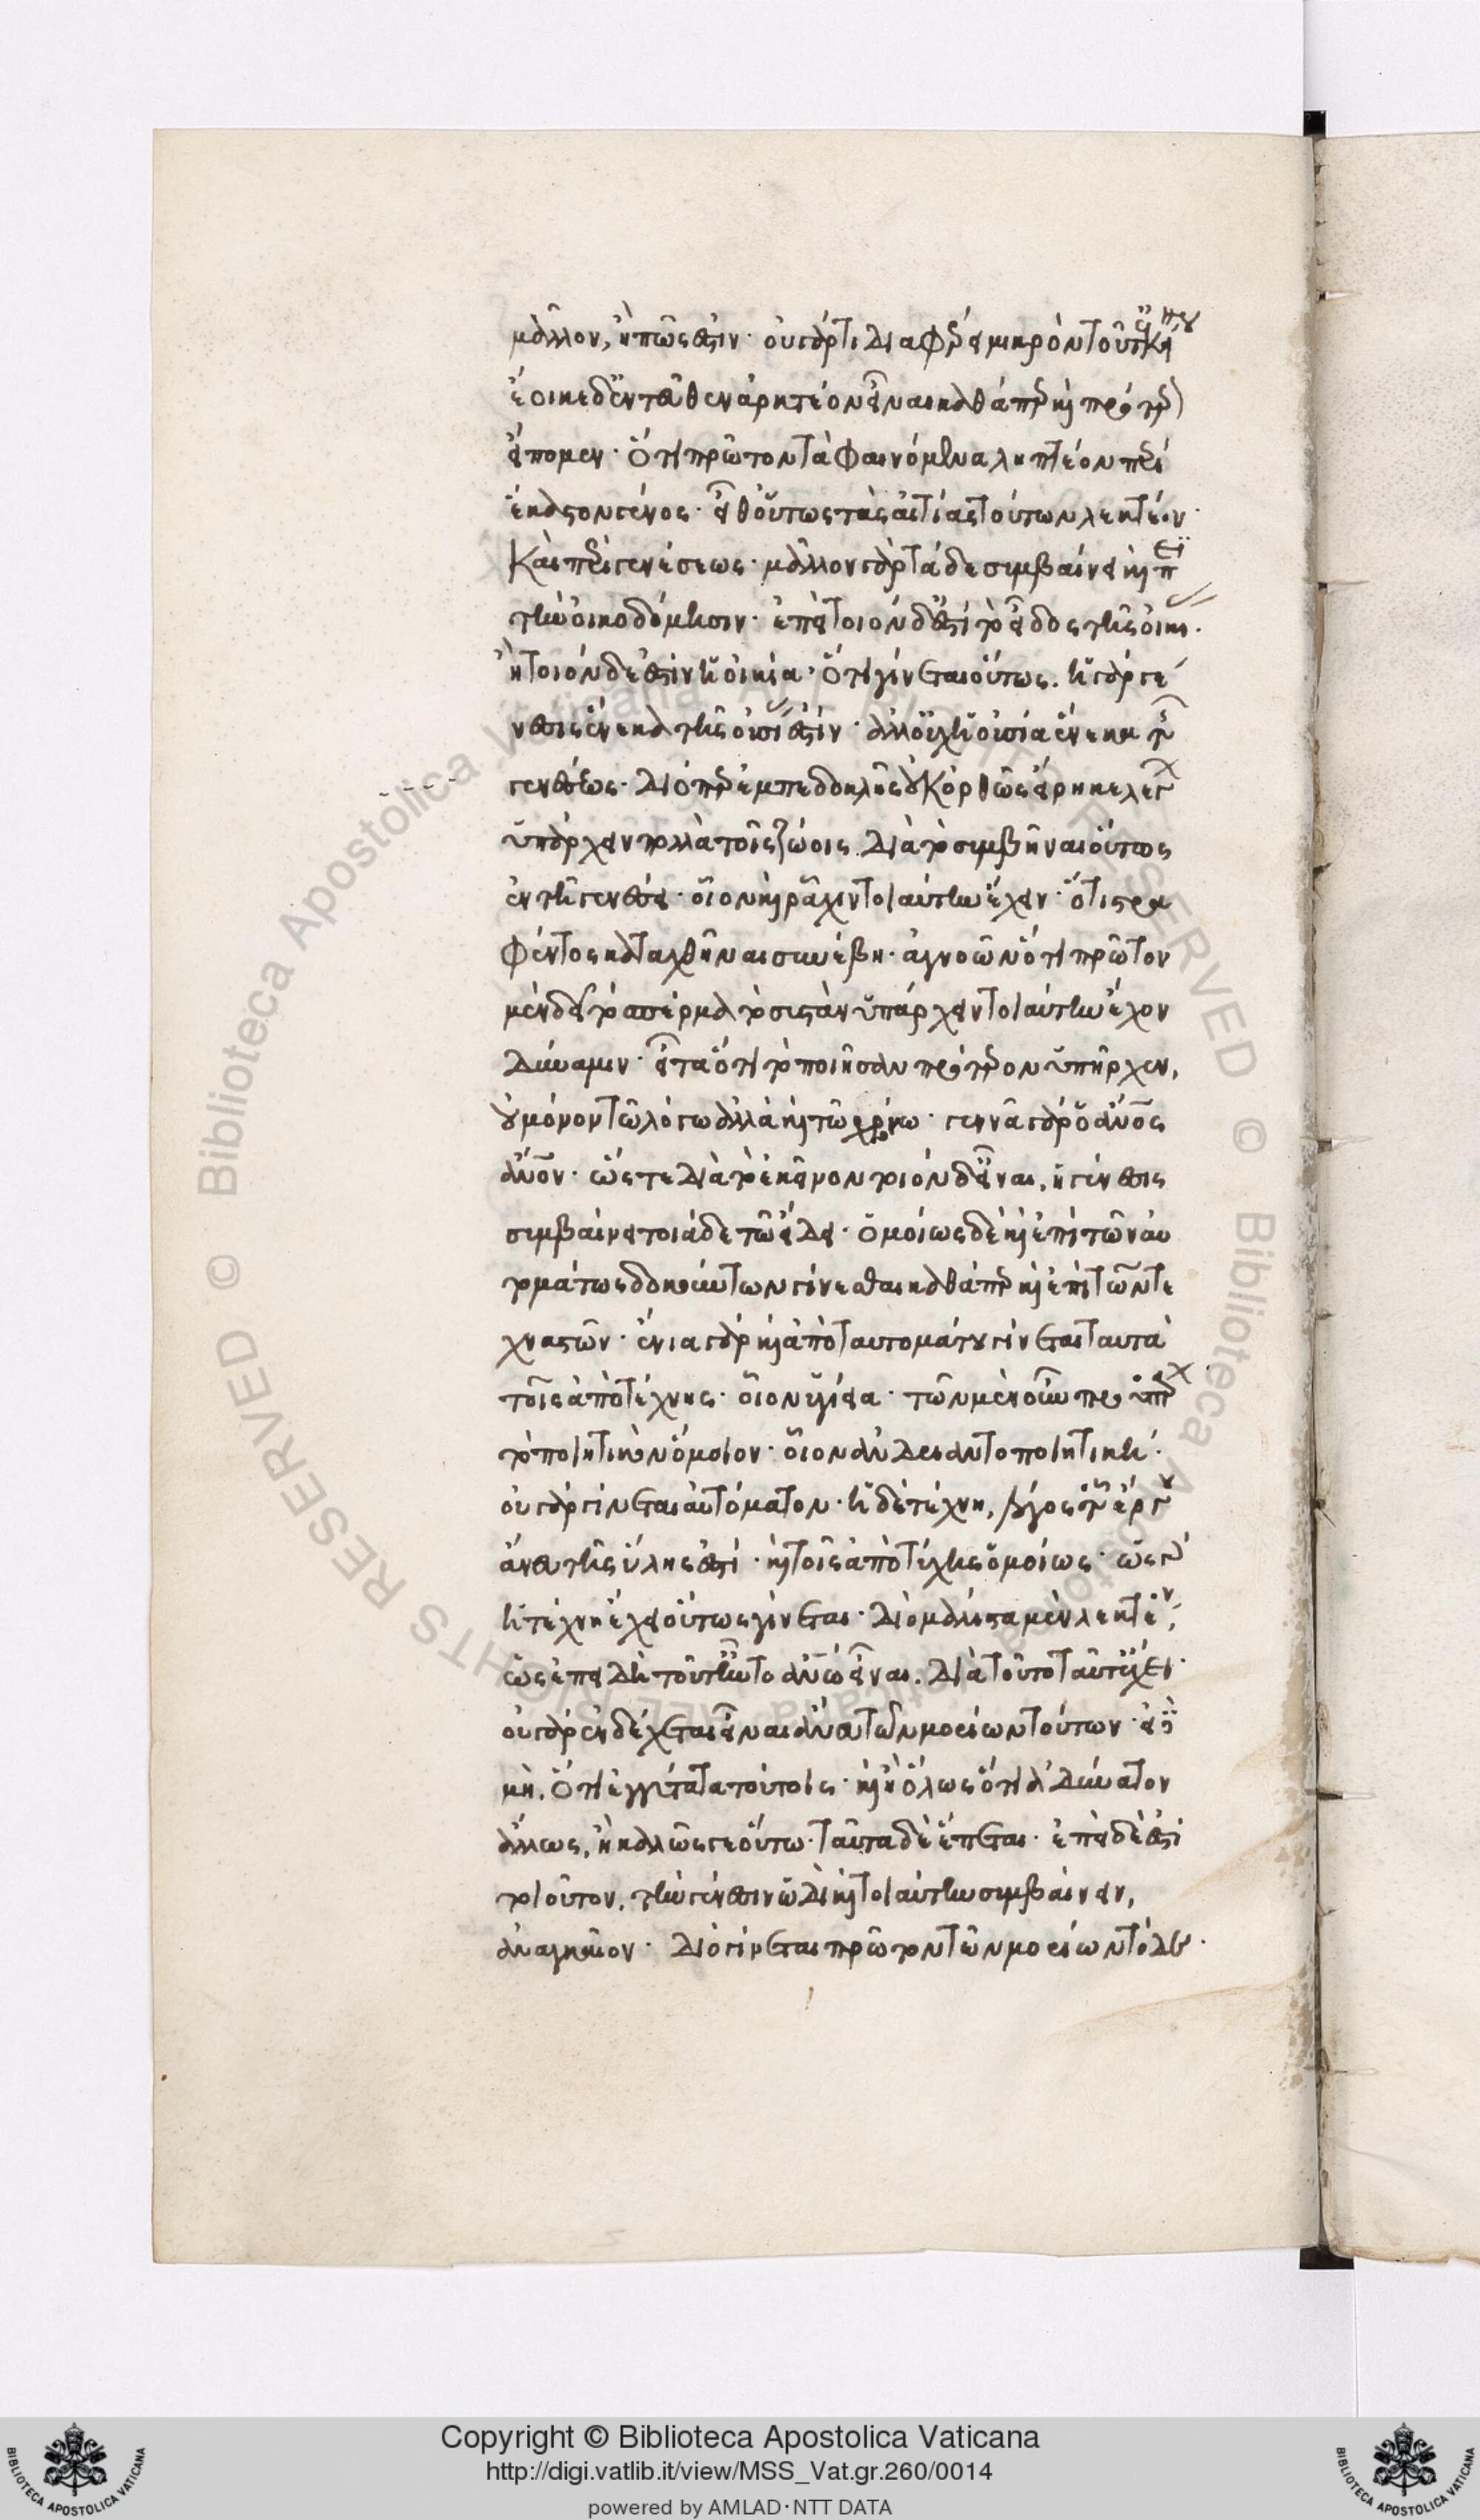 μᾶλλον, ἢ πῶς ἐστιν· οὐ γάρ τι διαφέρει μικρὸν τοῦτο κἀκείνου
ἔοικε δ' ἐντεῦθεν ἀρκτέον εἶναι καθάπερ καὶ πρότερον
εἴπομεν· ὅτι πρῶτον τὰ φαινόμενα ληπτέον περὶ
ἕκαστον γένος· εἶθ' οὕτως τὰς αἰτίας τούτων λεκτέον·
Καὶ περὶ γενέσεως· μᾶλλον γὰρ τάδε συμβαίνει καὶ περὶ
τὴν οἰκοδόμησιν· ἐπεὶ τοιόνδ' ἐστὶ τὸ εἶδος τῆς οἰκίας·
ἢ τοιόνδε ἐστὶν ἡ οἰκία· ὅτι γίνεται οὕτως. ἡ γὰρ γέ
νεσις ἕνεκα τῆς οὐσίας ἐστίν· ἀλλ' οὐχ ἡ οὐσία ἕνεκα τῆς
γενέσεως· Διόπερ ἐμπεδοκλῆς οὐκ ὀρθῶς εἴρηκε λέγων
ὑπάρχειν πολλὰ τοῖς ζώοις. Διὰ τὸ συμβῆναι οὕτως
ἐν τῇ γενέσει· οἷον καὶ ῥάχιν τοιαύτην ἔχειν· ὅτι στρα
φέντος καταχθῆναι συνέβη· ἀγνοῶν ὅτι πρῶτον
μὲν δεῖ τὸ σπέρμα τὸ συστὰν ὑπάρχειν τοιαύτην ἔχον
Δύναμιν· εἶτα ὅτι τὸ ποιῆσαν πρότερον ὑπῆρχεν,
οὐ μόνον τῷ λόγω ἀλλὰ καὶ τῷ χρόνω· γεννᾶ γὰρ ὁ ἄνος
ἄνον· ὥστε Διὰ τὸ ἐκεῖνον τοιόνδ' εἶναι, ἡ γένεσις
συμβαίνει τοιάδε τωδί· ὁμοίως δὲ καὶ ἐπὶ τῶν αὐ
τομάτως δοκούντων γίνεσθαι καθάπερ καὶ ἐπὶ τῶν τε
χναστῶν· ἔνια γὰρ καὶ ἀπὸ ταυτομάτου γίνεται ταυτὰ
τοῖς ἀπὸ τέχνης· οἷον ὑγίεια· τῶν μὲν οὖν προϋπάρχει
τὸ ποιητικὸν ὅμοιον· οἷον ἀνδριαντοποιητική·
οὐ γὰρ γίνεται αὐτόματον· ἡ δὲ τέχνη, λόγος τοῦ ἔργου
ἄνευ τῆς ὕλης ἐστί· καὶ τοῖς ἀπὸ τύχης ὁμοίως· ὡς γὰρ
ἡ τέχνη ἔχει οὕτως γίνεται· Διὸ μάλιστα μὲν λεκτέον,
ὡς ἐπειδὴ τοῦτ' ἦν τὸ ἀνω εἶναι. Διὰ τοῦτο ταῦτ' ἔχει·
οὐ γὰρ ἐνδέχεται εἶναι ἄνευ τῶν μορίων τούτων· εἰ δὲ
μὴ. ὅτι ἐγγύτατα τούτοις· καὶ ἢ ὅλως ὅτι ἀδύνατον
ἄλλως, ἢ καλῶς γε οὕτω· ταῦτα δὲ ἕπεται· ἐπεὶ δέ ἐστι
τοιοῦτον, τὴν γένεσιν ὡδὶ καὶ τοιαύτην συμβαίνειν,
ἀναγκαῖον· Διὸ γίνεται πρῶτον τῶν μορίων τόδε·
Copyright © Biblioteca Apostolica Vaticana
http://digi.vatlib.it/view/MSS_Vat.gr.260/0014
powered by AMLAD·NTT DATA